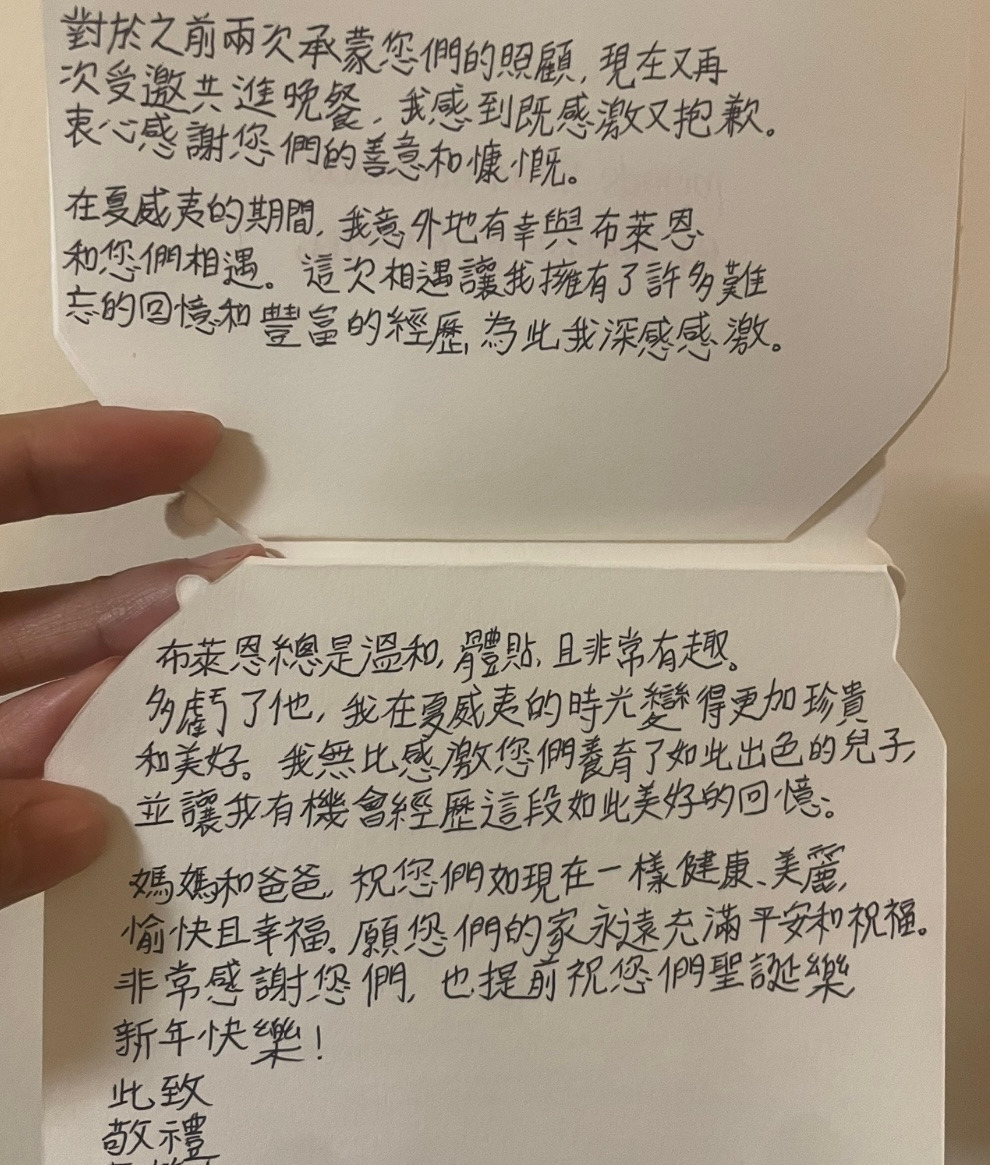 對於之前兩次承蒙您們的照顧, 現在又再
次受邀共進晚餐, 我感到既感激又抱歉。
衷心感謝您們的善意和慷慨。
在夏威夷的期間, 我意外地有幸與布萊恩
和您們相遇。這次相遇讓我擁有了許多難
忘的回憶和豐富的經歷, 為此我深感感激。
布萊恩總是溫和, 體貼, 且非常有趣。
多虧了他, 我在夏威夷的時光變得更加珍貴
和美好。我無比感激您們養育了如此出色的兒子,
並讓我有機會經歷這段如此美好的回憶。
媽媽和爸爸, 祝您們如現在一樣健康、美麗,
愉快且幸福。願您們的家永遠充滿平安和祝福。
非常感謝您們, 也提前祝您們聖誕樂
新年快樂!
此致
敬禮